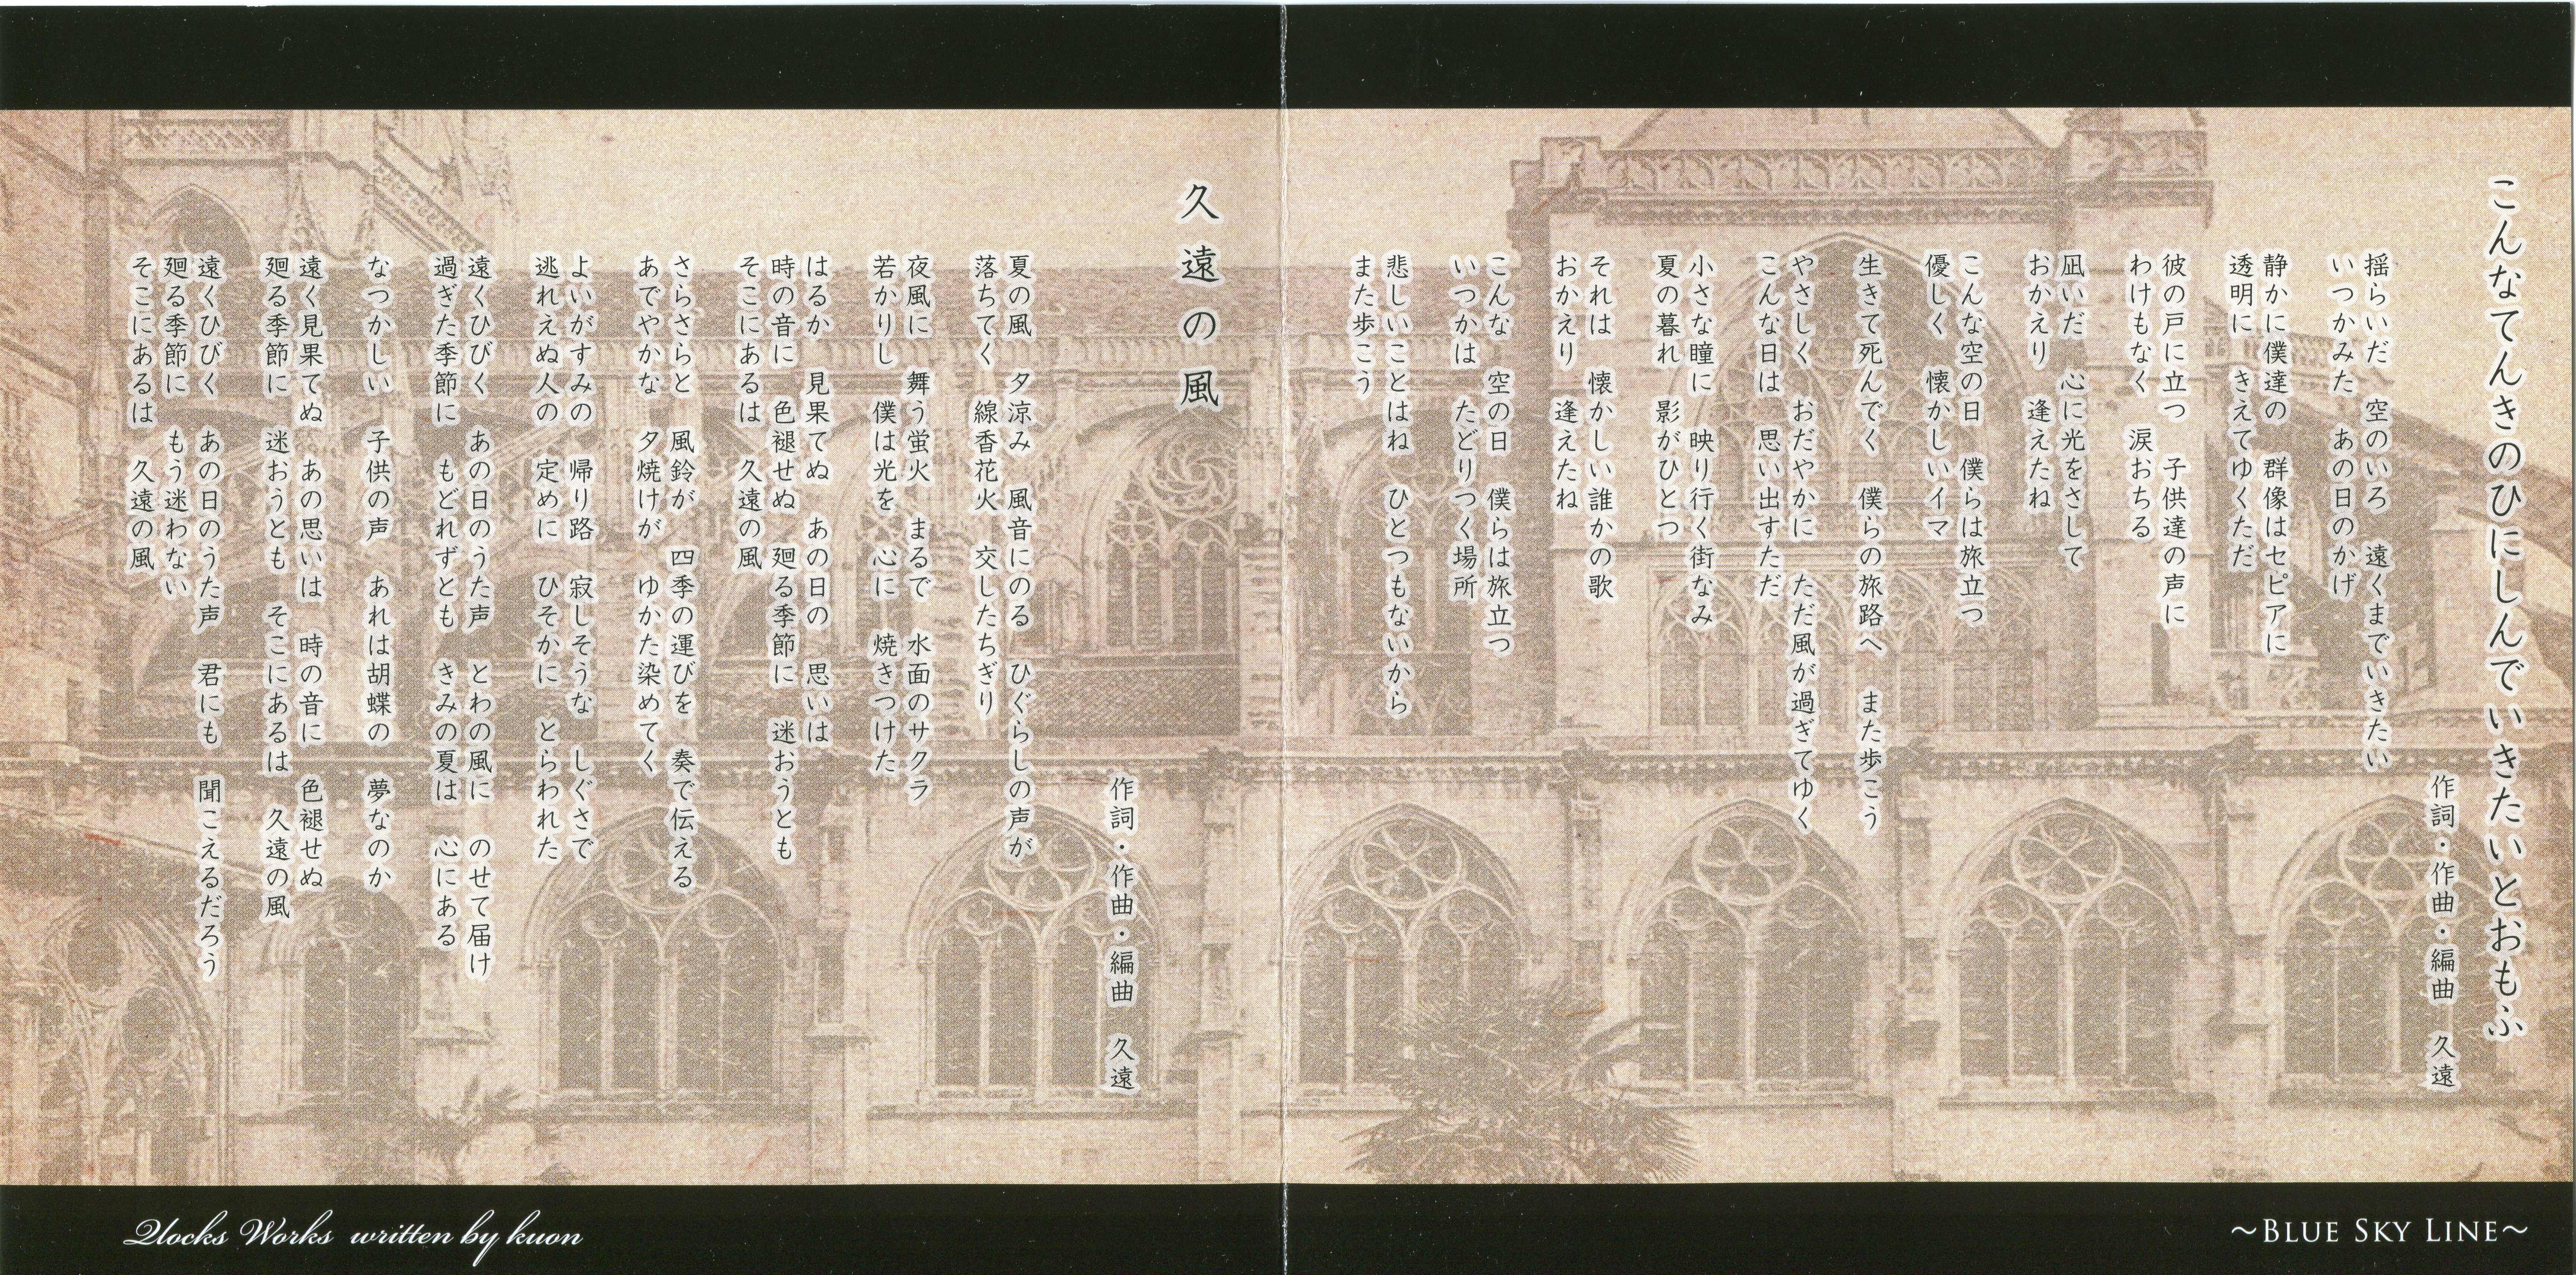 こんなてんきのひにしんでいきたいとおもふ
作詞・作曲・編曲　久遠
揺らいだ　空のいろ　遠くまでいきたい
いつかみた　あの日のかげ
静かに僕達の　群像はセピアに
透明に　きえてゆくただ
彼の戸に立つ　子供達の声に
わけもなく　涙おちる
凪いだ　心に光をさして
おかえり　逢えたね
こんな空の日　僕らは旅立つ
優しく　懐かしいイマ
生きて死んでく　僕らの旅路へ　また歩こう
やさしく　おだやかに　ただ風が過ぎてゆく
こんな日は　思い出すただ
小さな瞳に　映り行く街なみ
夏の暮れ　影がひとつ
それは　懐かしい誰かの歌
おかえり　逢えたね
こんな　空の日　僕らは旅立つ
いつかは　たどりつく場所
悲しいことはね　ひとつもないから
また歩こう
久遠の風
作詞・作曲・編曲　久遠
夏の風　夕涼み　風音にのる　ひぐらしの声が
落ちてく　線香花火　交したちぎり
夜風に　舞う蛍火　まるで　水面のサクラ
若かりし　僕は光を　心に　焼きつけた
はるか　見果てぬ　あの日の　思いは
時の音に　色褪せぬ　廻る季節に　迷おうとも
そこにあるは　久遠の風
さらさらと　風鈴が　四季の運びを　奏で伝える
あでやかな　夕焼けが　ゆかた染めてく
よいがすみの　帰り路　寂しそうな　しぐさで
逃れえぬ人の　定めに　ひそかに　とらわれた
遠くひびく　あの日のうた声　とわの風に　のせて届け
過ぎた季節に　もどれずとも　きみの夏は　心にある
なつかしい　子供の声　あれは胡蝶の　夢なのか
遠く見果てぬ　あの思いは　時の音に　色褪せぬ
廻る季節に　迷おうとも　そこにあるは　久遠の風
遠くひびく　あの日のうた声　君にも　聞こえるだろう
廻る季節に　もう迷わない
そこにあるは　久遠の風
Qlocks Works written by kuon
～BLUE SKY LINE～